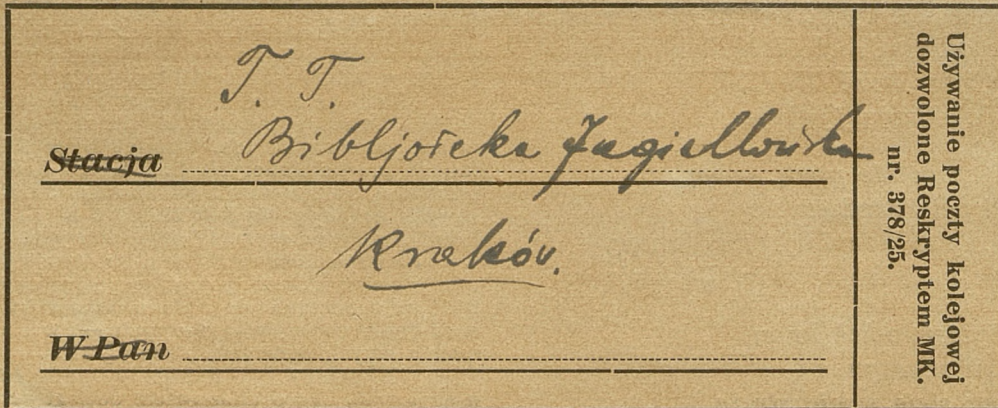 T. T.
Stacja Bibljoteka Jagiellońska
Kraków.
W Pan
Używanie poczty kolejowej
dozwolone Reskryptem MK.
nr. 378/25.